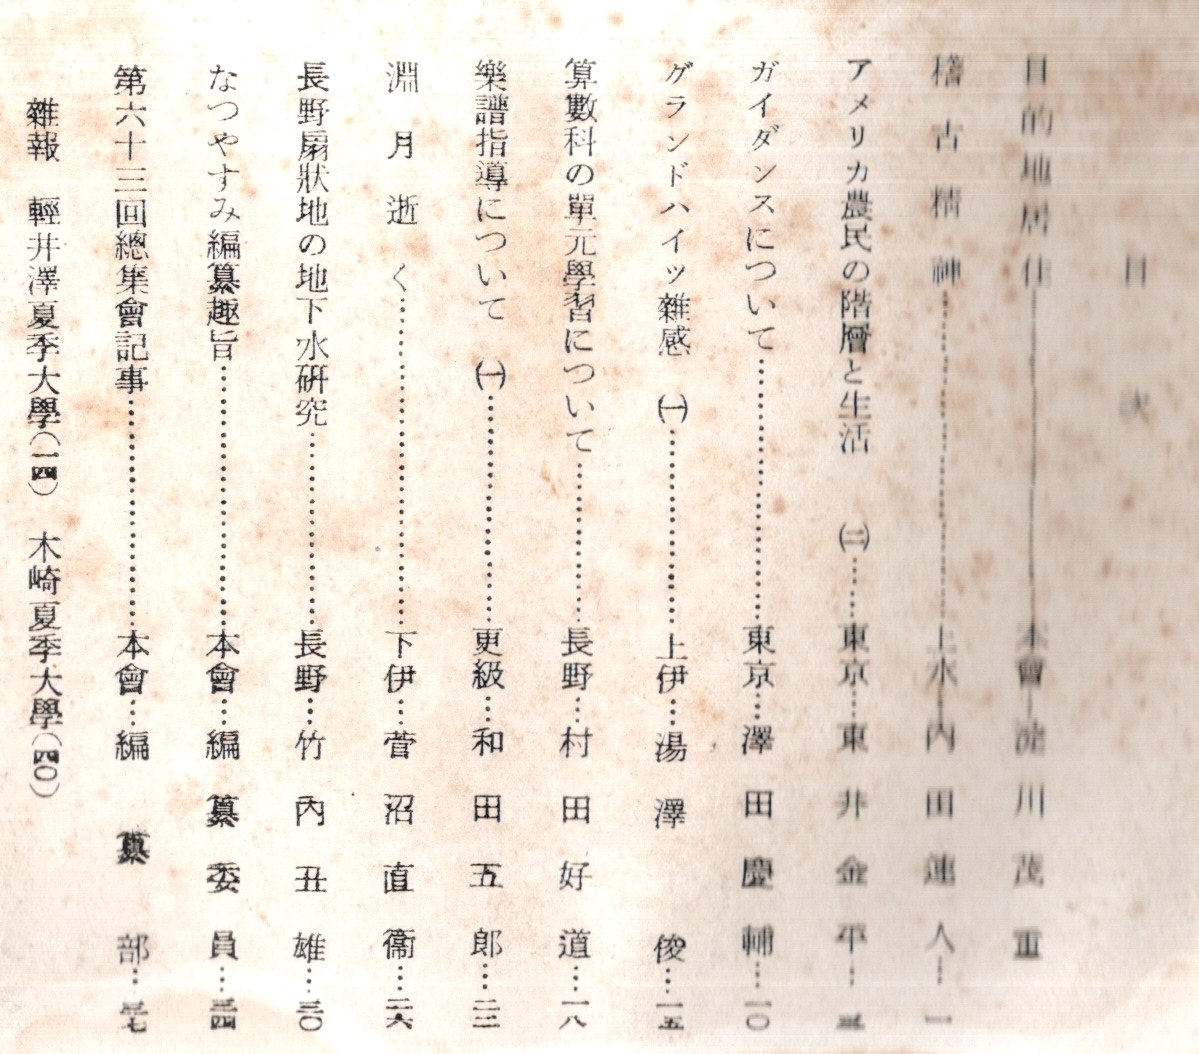 目次
目的地居住――本會―淀川茂重
稽古精神……上水内田蓮人…一
アメリカ農民の階層と生活 ㈡……東京…東井金平…三
ガイダンスについて……東京…澤田慶輔…一〇
グランドハイッ雜感 ㈠……上伊…湯澤俊…一五
算數科の單元學習について……長野…村田好道…一八
樂譜指導について ㈠……更級…和田五郎…二二
淵月逝く……下伊…菅沼直衞…二六
長野扇狀地の地下水硏究……長野…竹内丑雄…三〇
なつやすみ編纂趣旨……本會…編纂委員…三四
第六十三回總集會記事……本會…編纂部…三七
雜報 輕井澤夏季大學(一四) 木崎夏季大學(四〇)